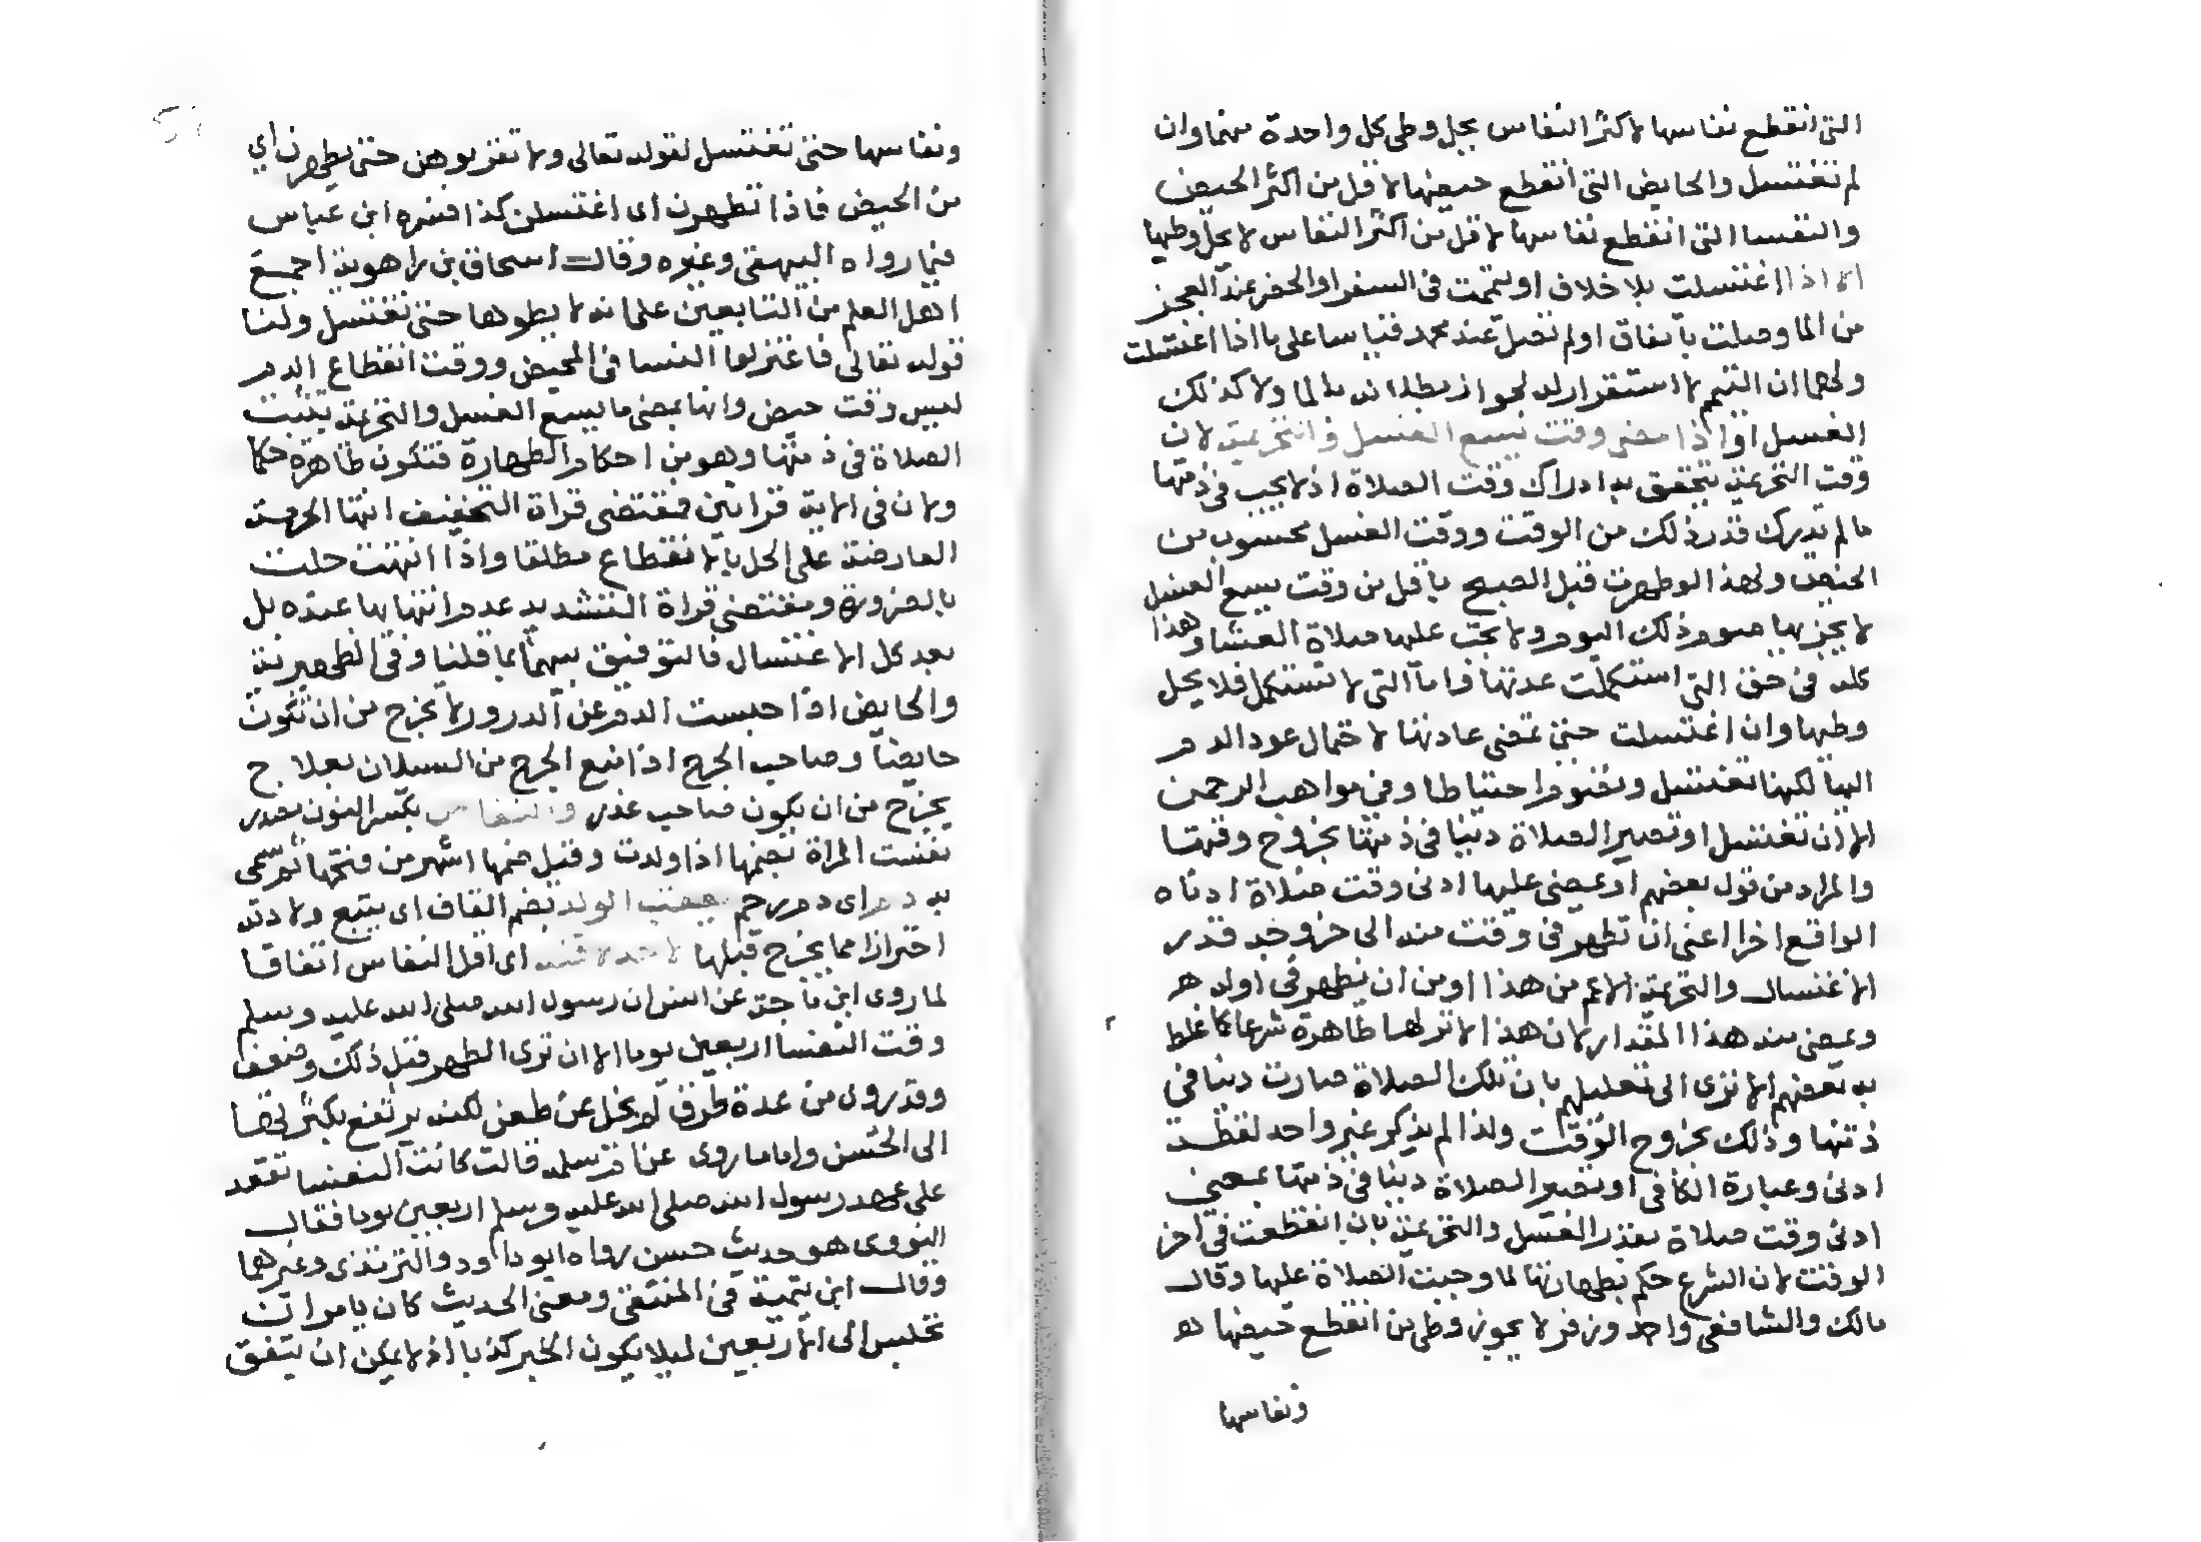 التى انقطع نفاسها لاكثر النفاس يحل وطى كل واحدة منهما وان
لم تغتسل والحايض التى انقطع حيضها لاقل من اكثر الحيض
والنفسا التى انقطع نفاسها لاقل من اكثر النفاس لا يحل وطيها
الا اذا اغتسلت بلا خلاف او تيممت فى السفر او الحضر عند العجز
من الما وصلت باتفاق او لم تصل عند محمد قياسا على ما اذا اغتسلت
ولهما ان التيمم لا استقرار له لجواز بطلانه بالما ولا كذلك
الغسل او اذا مضى وقت يسع الغسل والتحريمة لان
وقت التحريمة يتحقق به ادراك وقت الصلاة اذ لا يجب فى ذمتها
ما لم تدرك قدر ذلك من الوقت ووقت الغسل محسوب من
الحيض ولهذا لو طهرت قبل الصبح باقل من وقت يسع الغسل
لا يجزيها صوم ذلك اليوم ولا يجب عليها صلاة العشا وهذا
كله فى حق التى استكملت عدتها واما التى لا تستكمل فلا يحل
وطيها وان اغتسلت حتى تمضى عادتها لاحتمال عود الدم
اليها لكنها تغتسل وتصوم احتياطا وفى مواهب الرحمن
الا ان تغتسل او تصير الصلاة دينا فى ذمتها بخروج وقتها
والمراد من قول بعضهم او يمضى عليها ادنى وقت صلاة ادناه
الواقع اخرا اعنى ان تطهر فى وقت منه الى خروجه قدر
الاغتسال والتحريمة لا اعم من هذا او من ان يطهر فى اوله
ويمضى منه هذا المقدار لان هذا لا تنزلها طاهرة شرعا كما غلط
به بعضهم الا ترى الى تعليلهم بان تلك الصلاة صارت دينا فى
ذمتها وذلك بخروج الوقت ولذا لم يذكر غير واحد لفظة
ادنى وعبارة الكافى او تصير الصلاة دينا فى ذمتها بمضى
ادنى وقت صلاة بقدر الغسل والتحريمة بان انقطعت فى اخر
الوقت لان الشرع حكم بطهارتها لما وجبت الصلاة عليها وقال
مالك والشافعى واحمد وزفر لا يجوز وطى من انقطع حيضها
ونفاسها
ونفاسها حتى تغتسل لقوله تعالى ولا تقربوهن حتى يطهرن اى
من الحيض فاذا تطهرن اى اغتسلن كذا فسره ابن عباس
فيما رواه البيهقى وغيره وقال اسحاق بن راهوية اجمع
اهل العلم من التابعين على انه لا يطوها حتى تغتسل ولنا
قوله تعالى فاعتزلوا النسا فى المحيض ووقت انقطاع الدم
ليس وقت حيض وانما بمضى ما يسع الغسل والتحريمة يثبت
الصلاة فى ذمتها وهو من احكام الطهارة فتكون طاهرة حكما
ولان فى الاية قراتين فمقتضى قراة التخفيف انتها الحرمة
العارضة على الحل بالانقطاع مطلقا واذا انتهت حلت
بالضرورة ومقتضى قراة التشديد عدم انتهايها عنده بل
بعد كل الاغتسال فالتوفيق بينهما بما قلنا وفى الظهيرية
والحايض اذا حبست الدم عن الدرور لا يخرج من ان تكون
حايضا وصاحب الجرح اذا منع الجرح من السيلان بعلاج
يخرج من ان يكون صاحب عذر والنفاس بكسر النون مصدر
نفست المراة بضمها اذا ولدت وقيل ضمها اشهر من فتحها ثم سمى
به دم اى دم رحم يعقب الولد بضم القاف اى يتبع ولادته
احترازا مما يخرج قبلها لا حد لاقله اى اقل النفاس اتفاقا
لما روى ابن ماجة عن انس ان رسول الله صلى الله عليه وسلم
وقت النفسا اربعين يوما الا ان ترى الطهر قبل ذلك وضعف
وقد روى من عدة طرق لم يخل عن طعن لكنه يرتفع بكثرتها
الى الحسن واما ما روى عن ام سلمة قالت كانت النفسا تقعد
على عهد رسول الله صلى الله عليه وسلم اربعين يوما فقال
النووى هو حديث حسن رواه ابو داود والترمذى وغيرهما
وقال ابن تيمية فى المنتقى ومعنى الحديث كان يامر ان
تجلس الى الاربعين ليلا يكون الخبر كذبا اذ لا يمكن ان يتفق